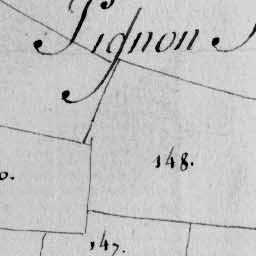 Pignon
148.
0.
147.